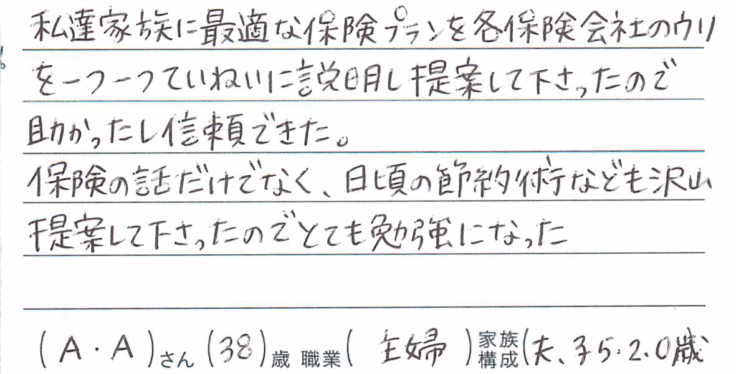 私達家族に最適な保険プランを各保険会社のウリ
を一つ一つていねいに説明し提案して下さったので
助かったし信頼できた。
保険の話だけでなく、日頃の節約術なども沢山
提案して下さったのでとても勉強になった
(A・A)さん (38)歳 職業( 主婦 )家族構成(夫、子5.2.0歳